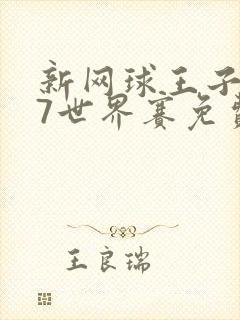 新网球王子
7世界赛免费
王良瑞